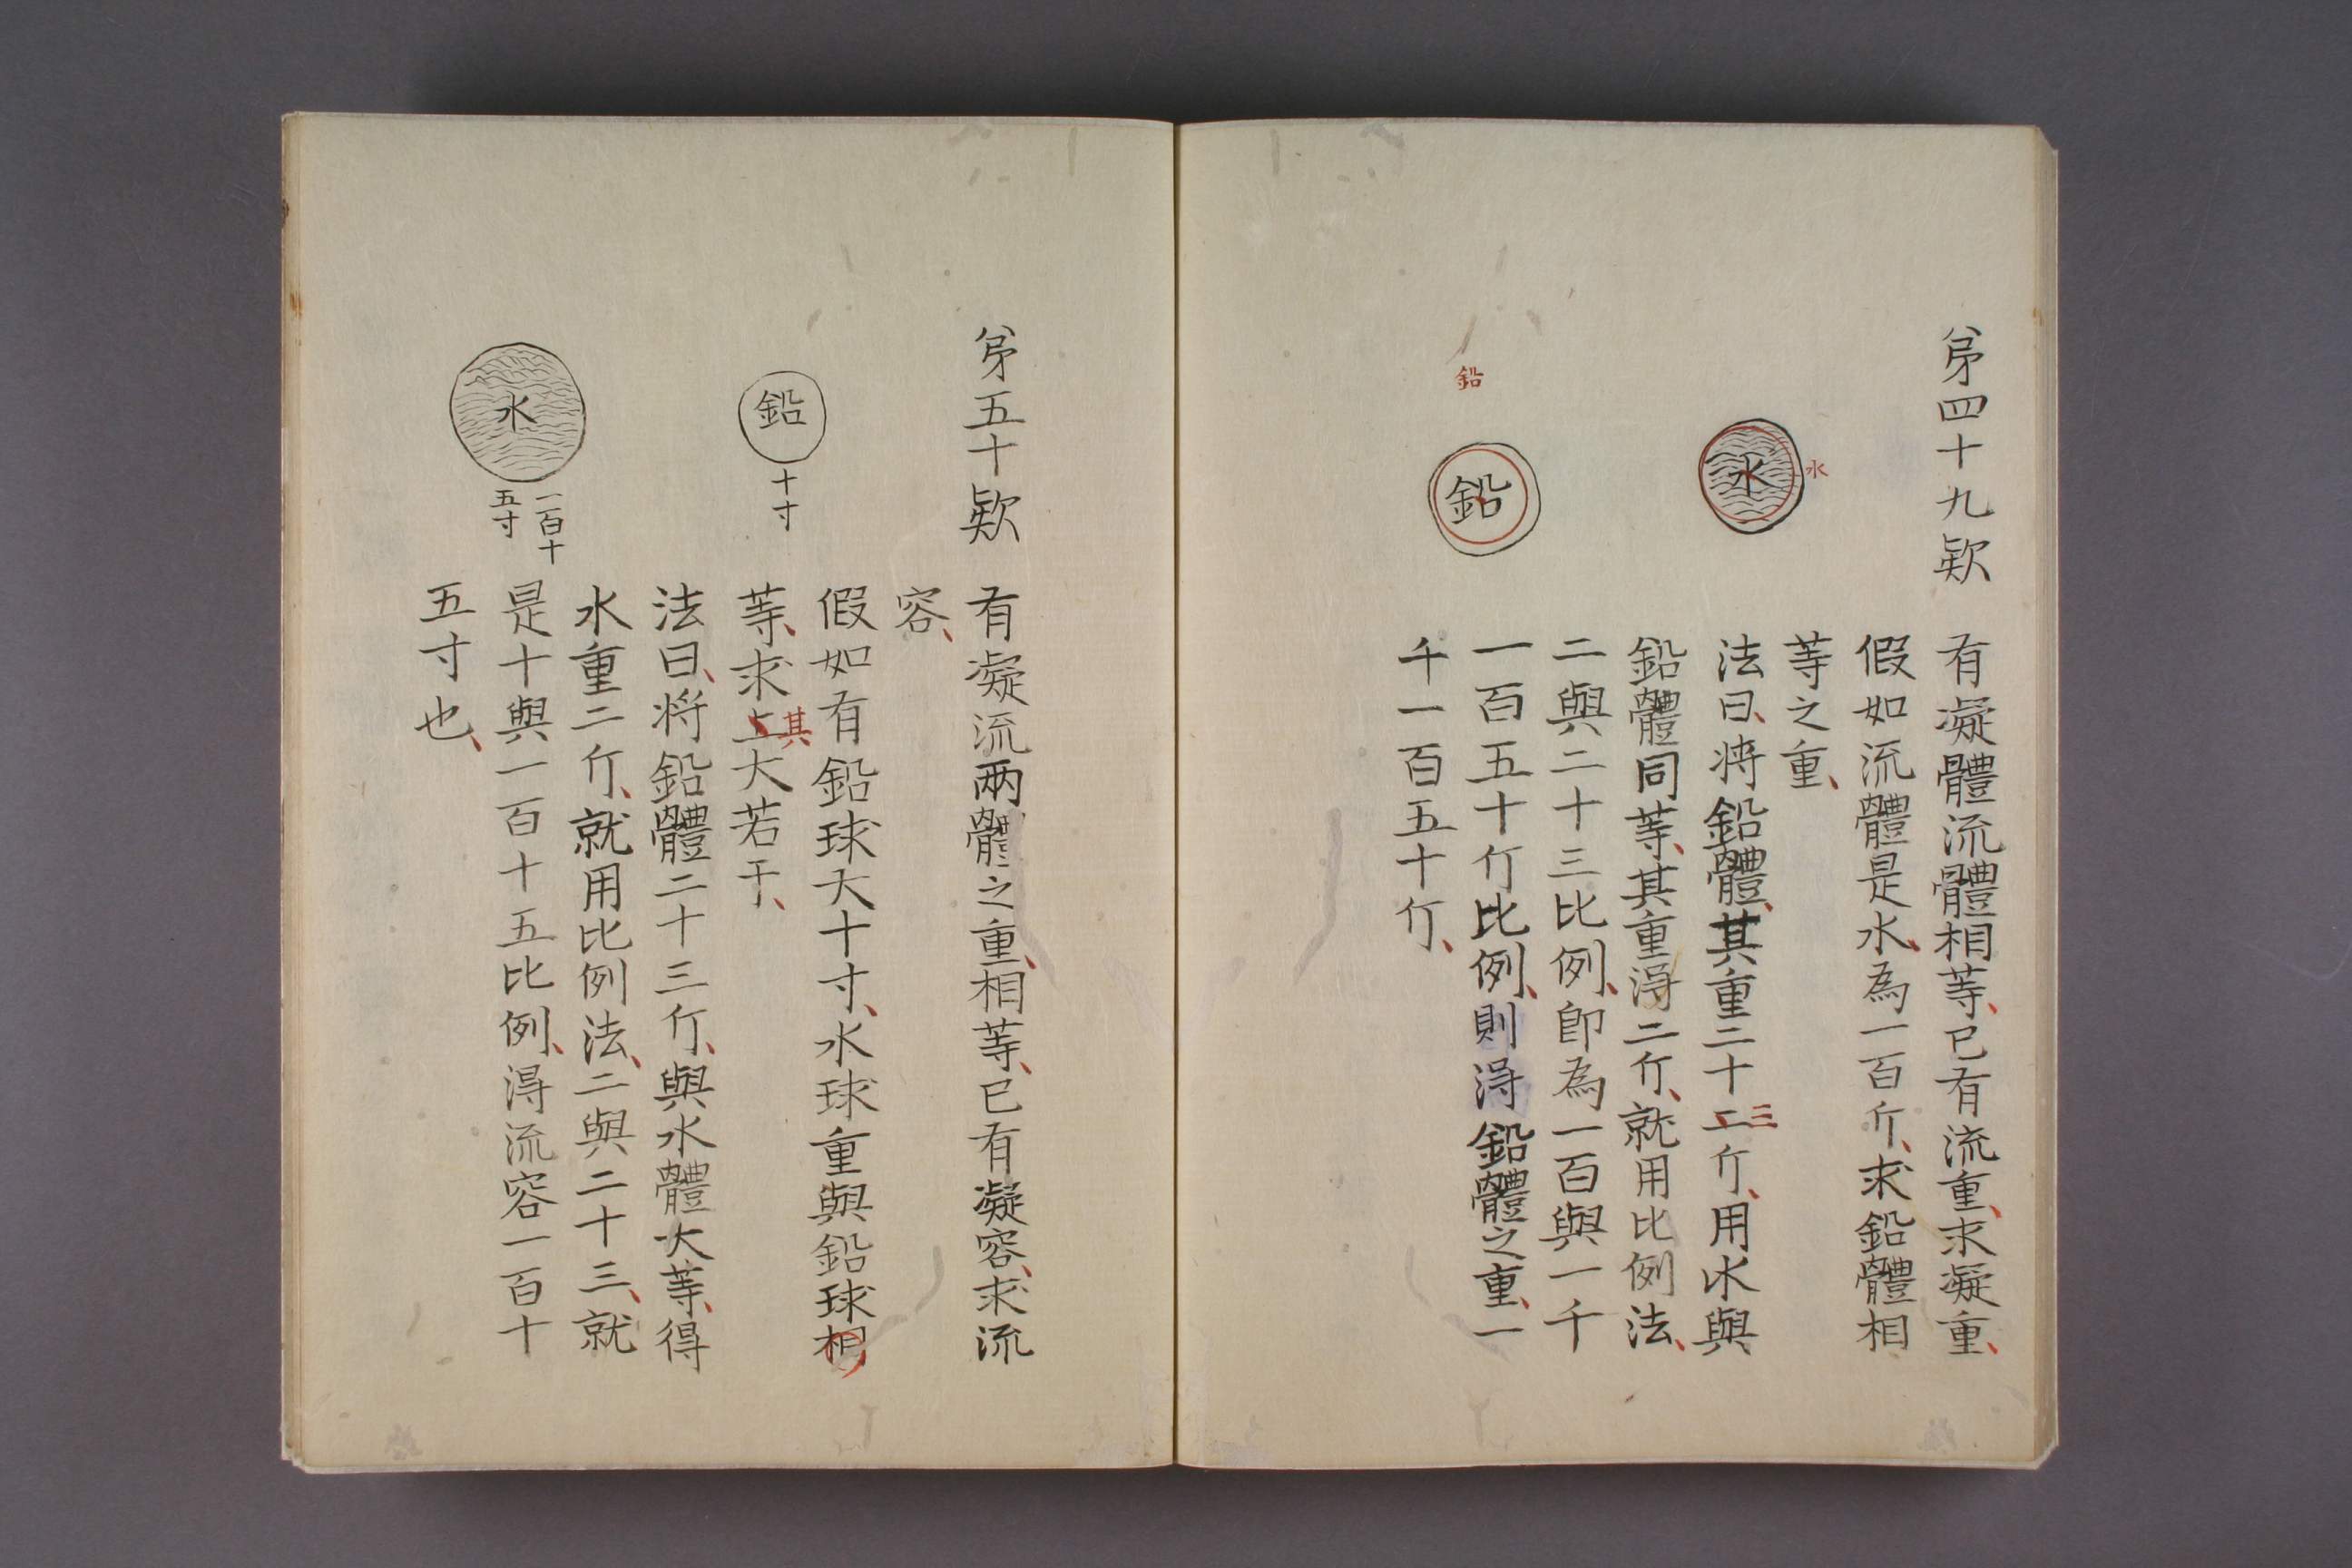 第四十九欵
有凝體流體相等、已有流重、求凝重、
假如流體是水、為一百斤、求鉛體相
等之重、
法曰、将鉛體、其重二十二斤、用水與
三
鉛體同等、其重淂二斤、就用比例法、
二與二十三比例、即為一百與一千
一百五十斤比例、則淂鉛體之重、一
千一百五十斤、
水
水
鉛
鉛
第五十欵
有凝流兩體之重、相等、已有凝容、求流
容、
假如有鉛球大十寸、水球重與鉛球相
等、求上大若干、
其
法曰、将鉛體二十三斤、與水體大等、得
水重二斤、就用比例法、二與二十三、就
是十與一百十五比例、淂流容一百十
五寸也、
鉛
十寸
水
一百十
五寸